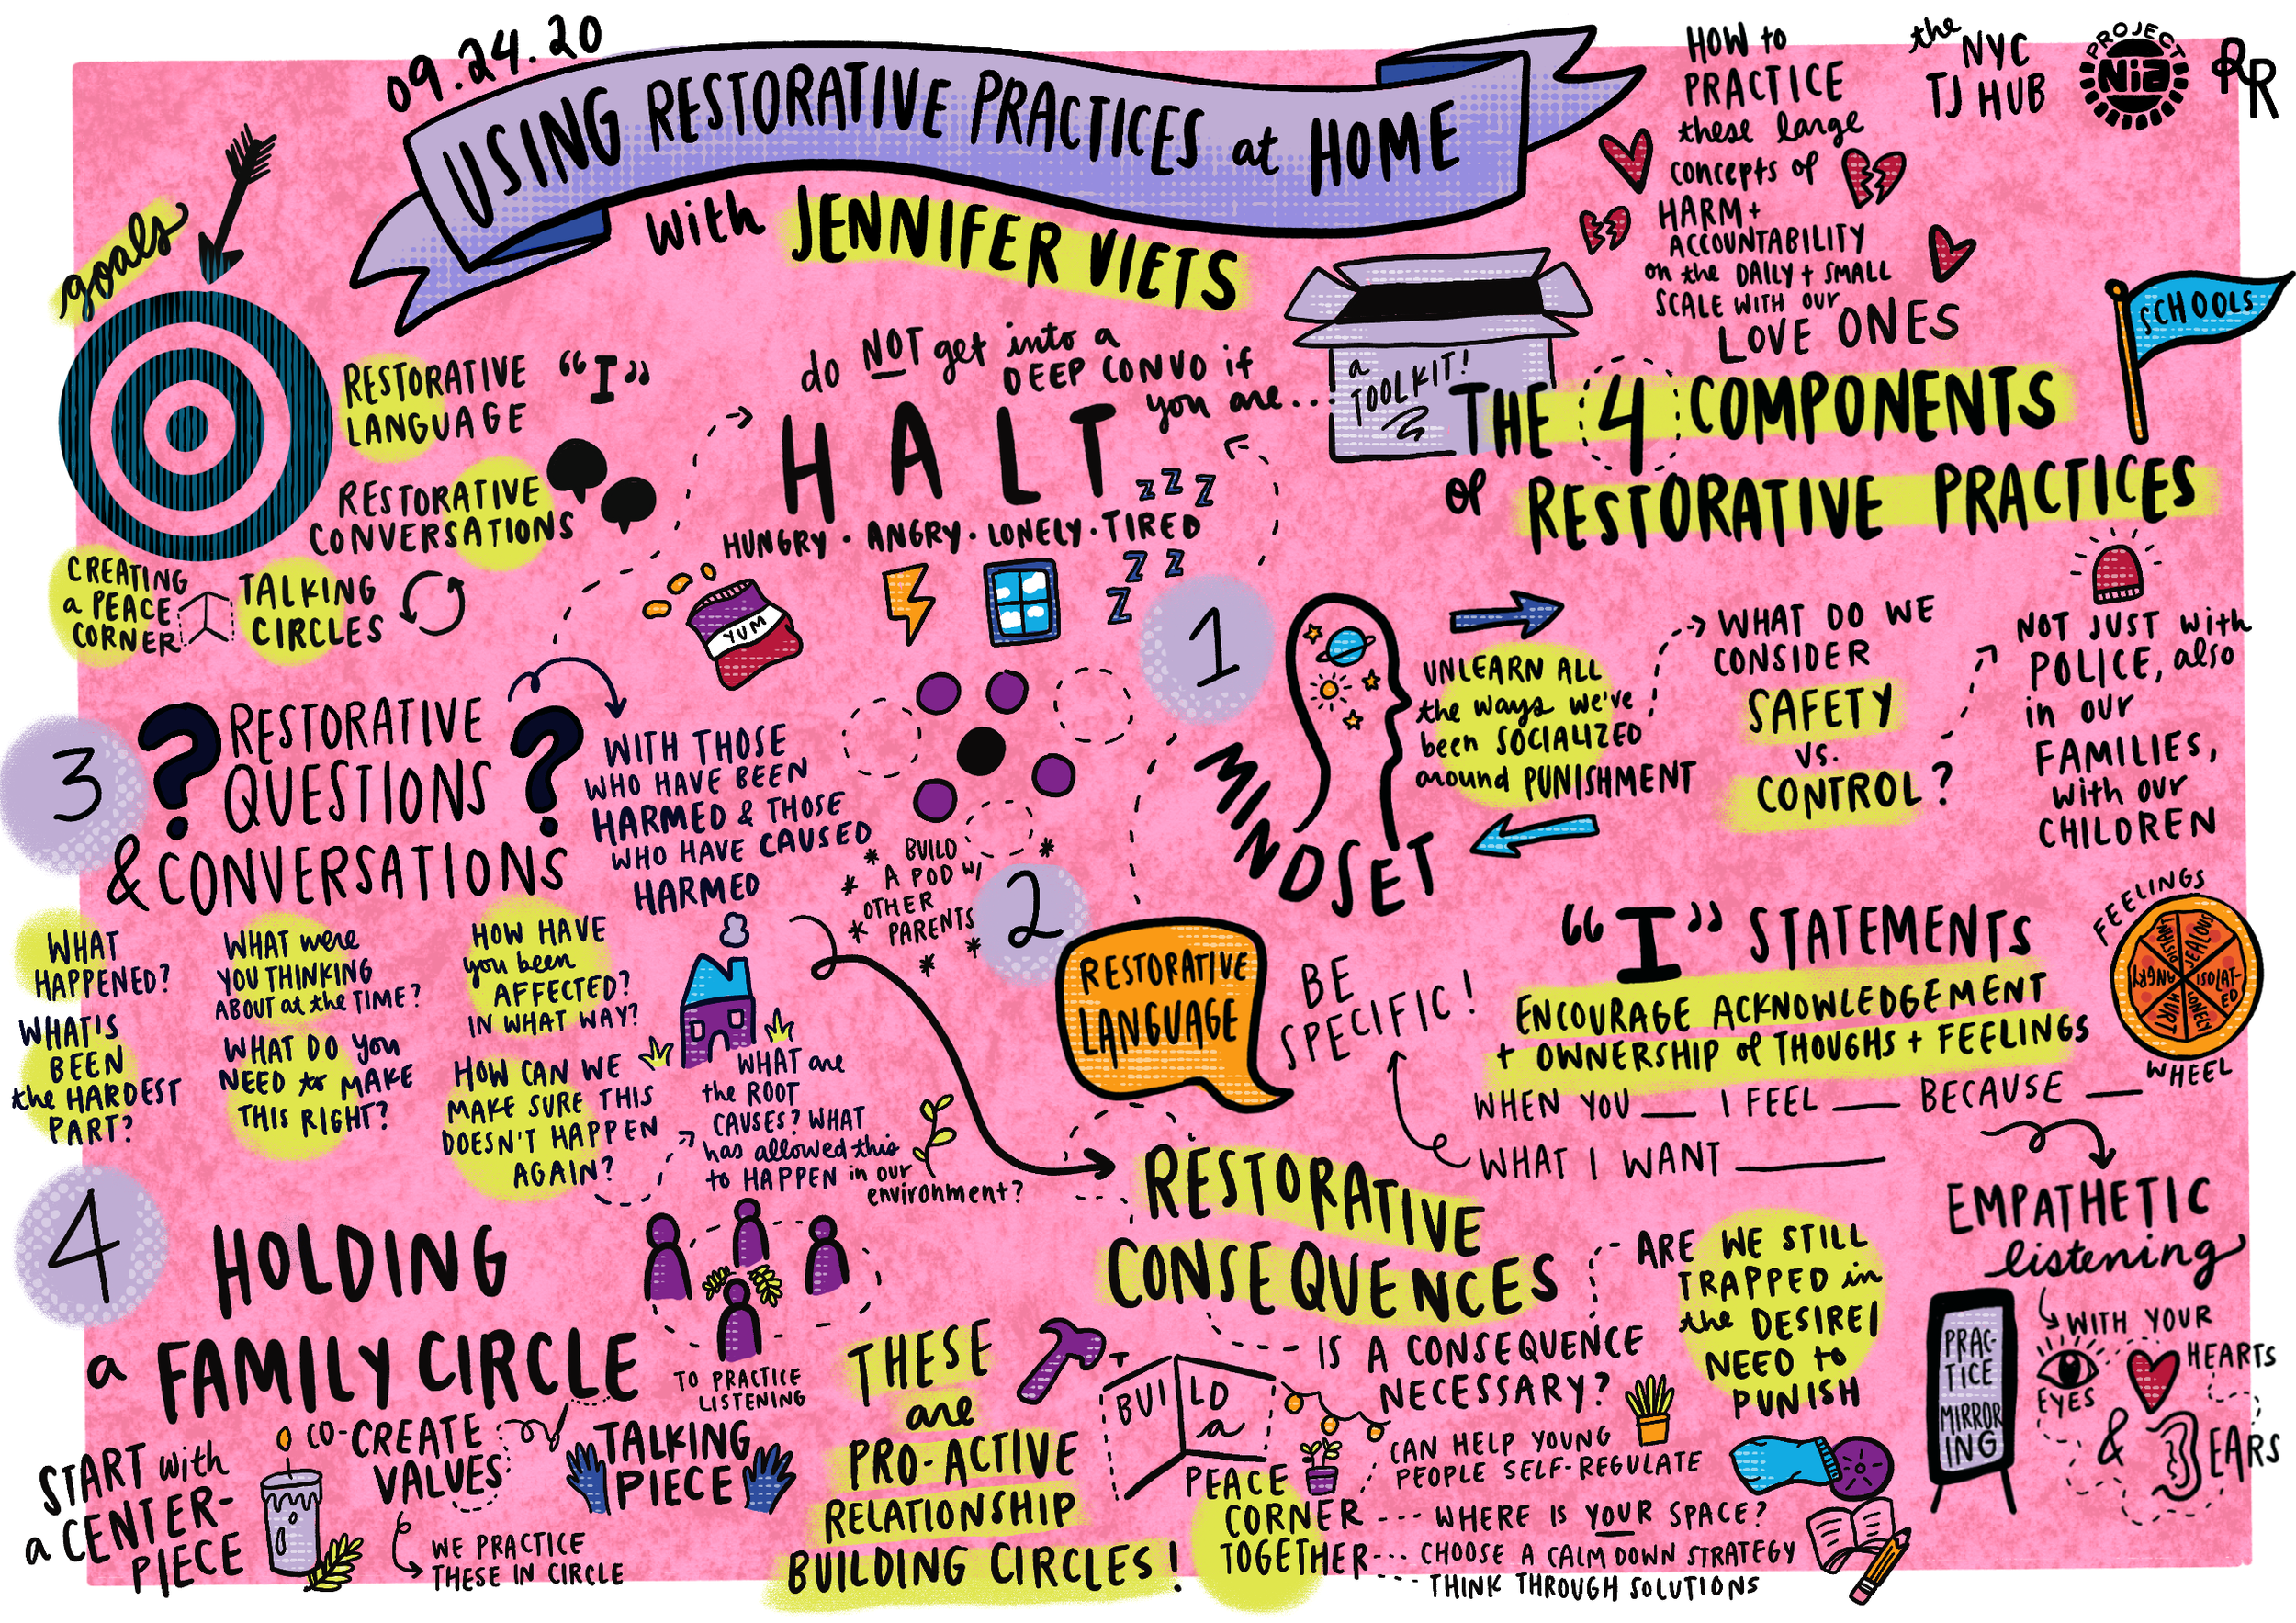 09.24.20
USING RESTORATIVE PRACTICES at HOME
with JENNIFER VIETS
HOW to
PRACTICE
these large
concepts of
HARM +
ACCOUNTABILITY
on the DAILY + SMALL
SCALE WITH our
LOVE ONES
the
NYC
TJ HUB
PROJECT
NIA
RR
goals
RESTORATIVE
LANGUAGE
"I"
RESTORATIVE
CONVERSATIONS
CREATING
a PEACE
CORNER
TALKING
CIRCLES
do NOT get into a
DEEP CONVO if
you are...
HALT
HUNGRY · ANGRY · LONELY · TIRED
Z Z Z
Z Z
Z
YUM
a
TOOLKIT!
SCHOOLS
THE 4 COMPONENTS
of RESTORATIVE PRACTICES
1
MINDSET
UNLEARN ALL
the ways we've
been SOCIALIZED
around PUNISHMENT
WHAT DO WE
CONSIDER
SAFETY
vs.
CONTROL?
NOT JUST with
POLICE, also
in our
FAMILIES,
with our
CHILDREN
2
RESTORATIVE
LANGUAGE
BE
SPECIFIC!
"I" STATEMENTS
ENCOURAGE ACKNOWLEDGEMENT
+ OWNERSHIP of THOUGHS + FEELINGS
WHEN YOU ___ I FEEL ___ BECAUSE ___
WHAT I WANT ___
FEELINGS
JEALOUS
ISOLATED
LONELY
HURT
ANGRY
WHEEL
EMPATHETIC
listening
WITH YOUR
EYES
HEARTS
& EARS
PRAC-
TICE
MIRROR
ING
3
? RESTORATIVE ?
QUESTIONS
& CONVERSATIONS
WITH THOSE
WHO HAVE BEEN
HARMED & THOSE
WHO HAVE CAUSED
HARMED
* BUILD *
* A POD w/
* OTHER
PARENTS *
*
WHAT
HAPPENED?
WHAT were
YOU THINKING
ABOUT at the TIME?
HOW HAVE
you been
AFFECTED?
IN WHAT WAY?
WHAT IS
BEEN
the HARDEST
PART?
WHAT DO you
NEED to MAKE
THIS RIGHT?
HOW CAN WE
MAKE SURE THIS
DOESN'T HAPPEN
AGAIN?
WHAT are
the ROOT
CAUSES? WHAT
has allowed this
to HAPPEN in our
environment?
RESTORATIVE
CONSEQUENCES
IS A CONSEQUENCE
NECESSARY?
ARE WE STILL
TRAPPED in
the DESIRE/
NEED to
PUNISH
4
HOLDING
a FAMILY CIRCLE
TO PRACTICE
LISTENING
START with
a CENTER-
PIECE
CO-CREATE
VALUES
WE PRACTICE
THESE IN CIRCLE
TALKING
PIECE
THESE
are
PRO-ACTIVE
RELATIONSHIP
BUILDING CIRCLES!
BUILD
a
PEACE
CORNER
TOGETHER
CAN HELP YOUNG
PEOPLE SELF-REGULATE
WHERE IS YOUR SPACE?
CHOOSE A CALM DOWN STRATEGY
THINK THROUGH SOLUTIONS